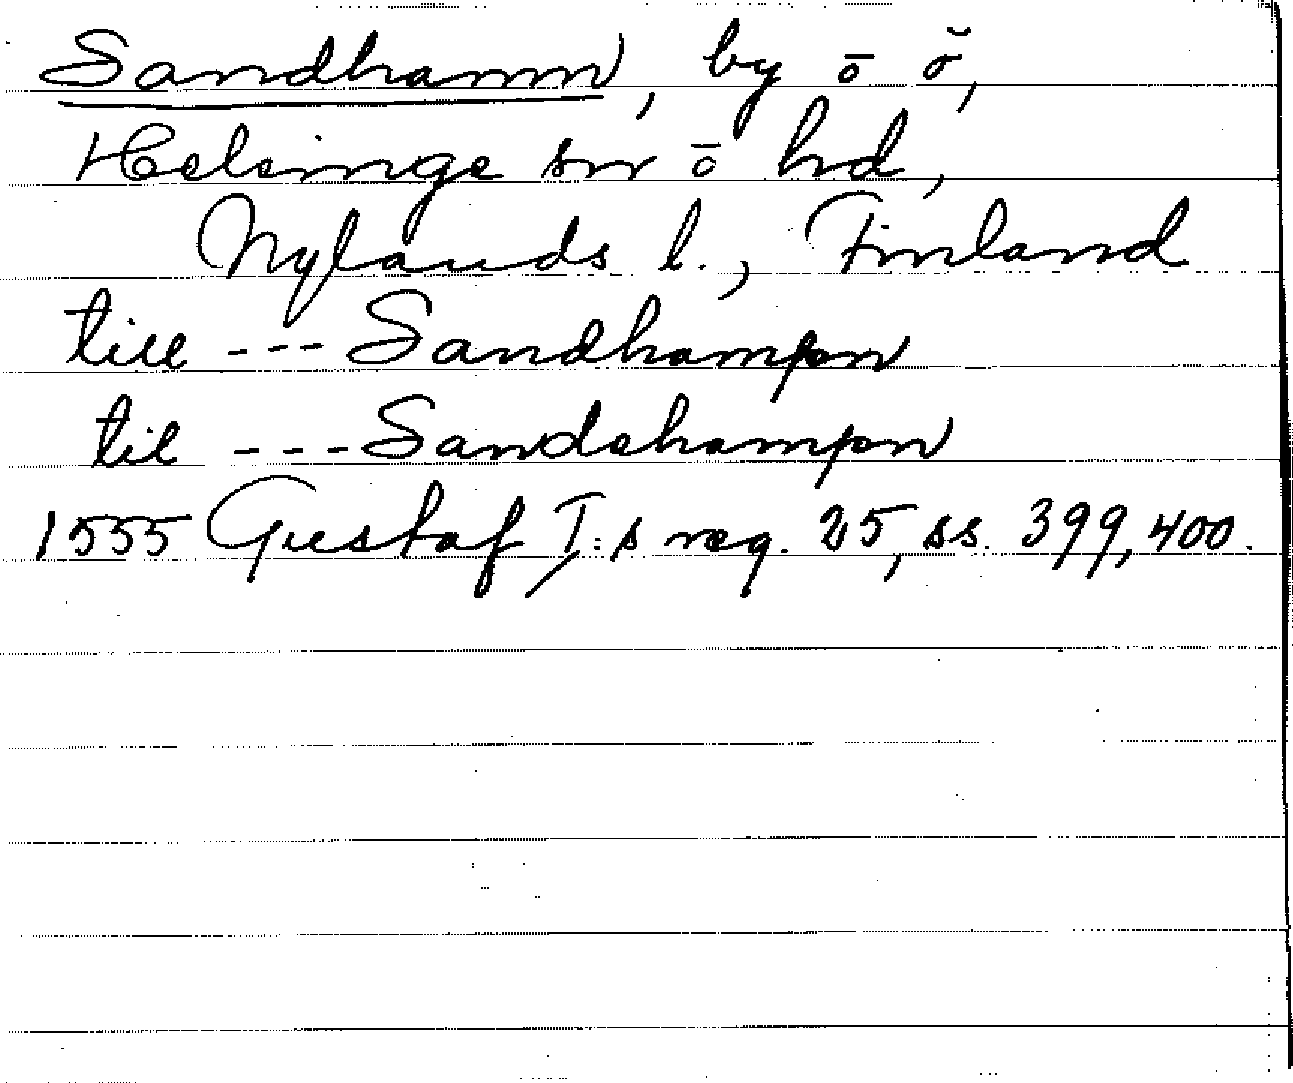 Sandhamn, by o ö,
Helsinge sn o hd,
Nylands l., Finland
till --- Sandhampn
til --- Sandehampn
1555 Gustaf I:s reg. 25, ss. 399, 400.